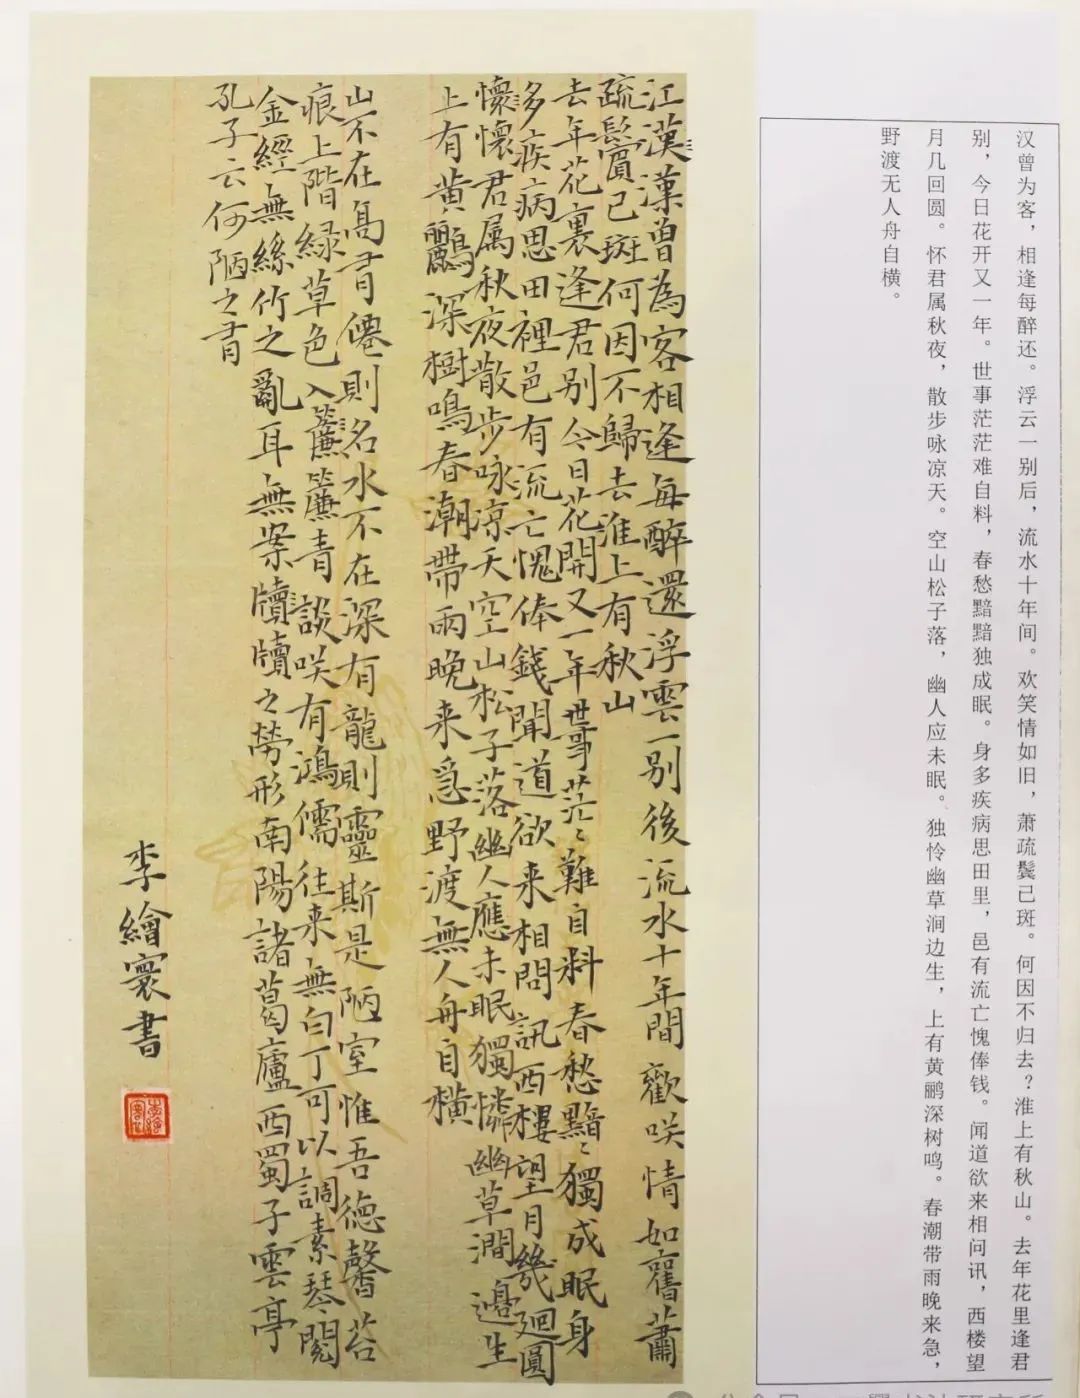 汉曾为客，相逢每醉还。浮云一别后，流水十年间。欢笑情如旧，萧疏鬓已斑。何因不归去？淮上有秋山。去年花里逢君
别，今日花开又一年。世事茫茫难自料，春愁黯黯独成眠。身多疾病思田里，邑有流亡愧俸钱。闻道欲来相问讯，西楼望
月几回圆。怀君属秋夜，散步咏凉天。空山松子落，幽人应未眠。独怜幽草涧边生，上有黄鹂深树鸣。春潮带雨晚来急，
野渡无人舟自横。
江漢漢曾為客相逢每醉還浮雲一别後流水十年間歡咲情如舊蕭
疏鬢已斑何因不歸去淮上有秋山
去年花裏逢君别今日花開又一年世事茫〻難自料春愁黯〻獨成眠身
多疾病思田裡邑有流亡愧俸錢聞道欲来相問訊西樓望月幾迴圓
懷懷君属秋夜散步咏凉天空山松子落幽人應未眠獨憐幽草澗邊生
上有黄鸝深樹鳴春潮帶雨晚来急野渡無人舟自橫
山不在高有僊則名水不在深有龍則靈斯是陋室惟吾德馨苔
痕上階緑草色入簾簾青談咲有鴻儒往来無白丁可以調素琴閲
金經無絲竹之亂耳無案牘牘之勞形南陽諸葛廬西蜀子雲亭
孔子云何陋之有
李繪寰書